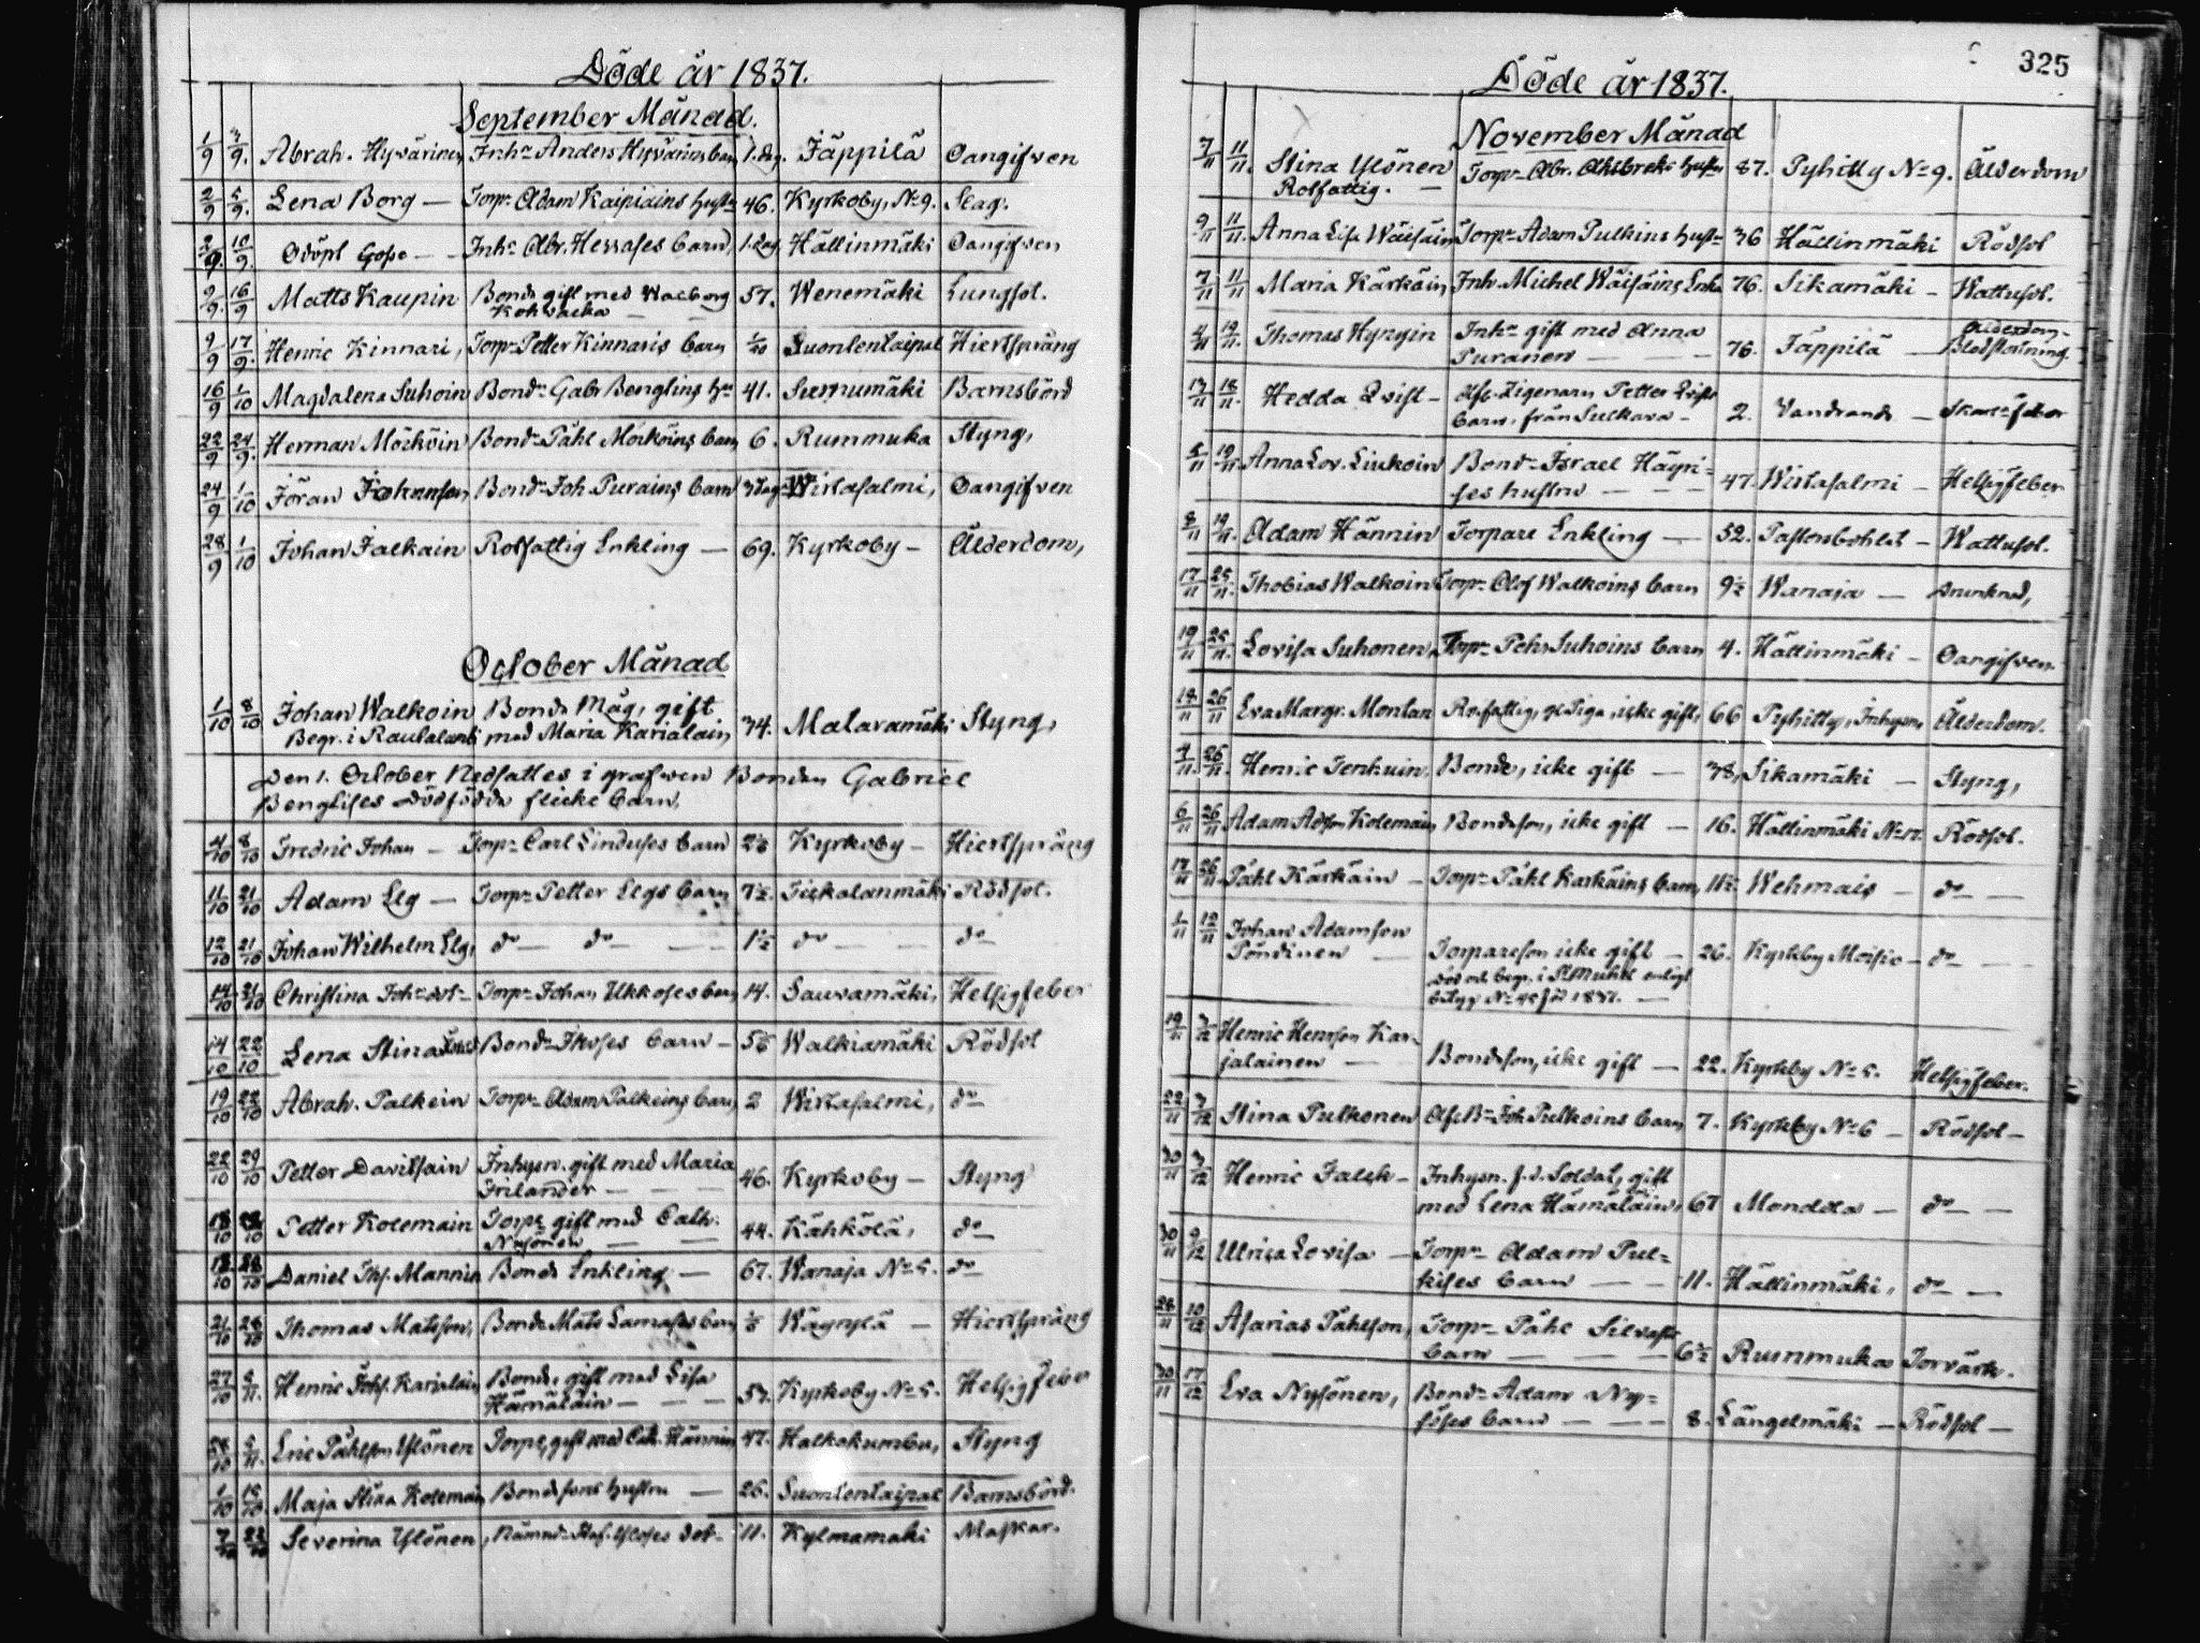 Döde år 1837.
September Månad.
1/9 3/9. Abrah. Hyvärinen Inhs Anders Hyvärins barn 1. dag. Jäppilä Oangifven
2/9 5/9. Lena Borg — Torp. Adam Kaipiains hustr 46. Kyrkoby, No 9. Slag.
2/9. 10/9. Odöpt Gosse — Inhs Abr. Herrases barn, 1. dag Hällinmäki Oangifven
9/9. 16/9 Matts Kaupin Bonde gift med Walborg 57. Wenemäki Lungsot.
Kohvacka —
9/9 17/9. Henric Kinnari, Torp. Petter Kinnaris barn Suontentaipal Hiertsprång
16/9 1/10 Magdalena Suhoin Bond. Gabr Benglins hu 41. Surnumäki Barnsbörd
22/9 24/9. Herman Mörköin Bond. Påhl Mörköins barn 6. Rummuka Styng,
24/9 1/10 Jöran Johansson Bond. Joh. Purains barn 3 dag. Wirtasalmi, Oangifven
28/9 1/10 Johan Jalkain Rotfattig Enkling — 69. Kyrkoby — Ålderdom,
October Månad
1/10 8/10 Johan Walkoin Bonde Måg, gift 34. Mataramäki Styng,
Begr. i Rautalambi med Maria Karialain
Den 1. October Nedsattes i grafven Bonden Gabriel
Benglises dödfödde flicke barn.
4/10 8/10 Fredric Johan — Torp. Carl Linduses barn Kyrkoby — Hiertsprång
11/10 21/10 Adam Elg — Torp. Petter Elgs barn 7½. Jickalanmäki Rödsot.
12/10 21/10 Johan Wilhelm Elg, do — do — 1½ do — do
14/10 21/10 Christina Johsdotr Torp. Johan Ukkoses barn 14. Sauvamäki, Hetsigfeber
14/10 22/10 Lena Stina Bond. Ikoses barn — Walkiamäki Rödsot
19/10 22/10 Abrah. Palkein Torp. Adam Palkeins barn, 2 Wirtasalmi, do
22/10 29/10 Petter Davitsain Inhysn. gift med Maria 46. Kyrkoby — Styng
Frilander —
18/10 Petter Kolemain Torp. gift med Cath. 44. Kähkölä, do
Nysönen —
18/10 Daniel Thf. Mannin Bonde Enkling — 67. Wanaja No 5. do
21/10 28/10 Thomas Matsson, Bonde Mats Lamases barn Hiertsprång
27/10 5/11. Henric Johs. Karialain Bonde, gift med Lisa 57. Kyrkoby No 5. Hetsigfeber
Hämäläin —
28/10 5/11. Eric Påhlson Ylönen Torp. gift med Cath. Hännin 47. Halkokumbu, Styng
1/10 15/10 Maja Stina Kolemain Bondesons hustru — 26. Suontentaipal Barnsbörd.
7/10 22/10 Severina Ylönen, Nämnd. Staf. Yloses dotr 11. Kylmamäki Maskar.
325
Döde år 1837.
November Månad
7/11 11/11. Stina Ylönen Torp. Abr. hustru 87. Pyhitty No 9. Ålderdom
Rotfattig. —
9/11 11/11. Anna Lisa Wäisäin Torp. Adam Pulkins hustr 36 Hällinmäki Rödsot
7/11 11/11 Maria Kärkäin, Inh. Michel Wäisäins Enka 76. Sikamäki — Wattusot.
4/11 19/11. Thomas Hyngin Inhs gift med Anna 76. Jäppilä — Ålderdom
Puranen — Blodstörtning.
13/11 18/11. Hedda Qvist — Afl. Zigenarn Petter Qvists 2. Vandrande — feber
barn, från Sulkava —
5/11 19/11 Anna Lov. Liukoin Bond. Israel Häyri- 47. Wirtasalmi — Hetsigfeber
ses hustru —
8/11 19/11. Adam Hännin Torpare Enkling — 52. Pastorsbohlet — Wattusot.
17/11 25/11. Thobias Walkoin Torp. Olof Walkoins barn 9½ Wanaja — Drunknad,
19/11 25/11. Lovisa Suhonen, Torp. Pehr Suhoins barn 4. Hällinmäki — Oangifven.
18/11 26/11 Eva Margr. Montan Rotfattig, gl Piga, icke gift, 66 Pyhitty, Inhysn, Ålderdom.
7/11. 26/11. Henric Tenhuin. Bonde, icke gift — 38, Sikamäki — Styng,
6/11 26/11 Adam Adsson Kolemain, Bondeson, icke gift — 16. Hällinmäki No 12. Rödsot.
17/11 26/11. Påhl Kärkäin — Torp. Påhl Kärkäins barn, 11½. Wehmais — do —
1/11 12/11 Johan Adamson
Pöndinen — Torpareson icke gift — 26. Kyrkby Moisio — do —
död och begr. i St Michel enligt
betyg No 45 för 1837. —
19/11 3/12 Henric Henrsson Kar-
jalainen — Bondeson, icke gift — 22. Kyrkby No 5. Hetsigfeber.
22/11 3/12 Stina Pulkonen Afl. Bo Joh Pulkoins barn 7. Kyrkby No 6 — Rödsot —
30/11 3/12 Henric Falck — Inhysn. f. d. Soldat, gift
med Lena Hämäläin, 67 Mondola — do —
30/11 9/12 Ulrica Lovisa — Torp. Adam Pul-
kises barn — 11. Hällinmäki, do —
28/11 10/12 Asarias Påhlson, Torp. Påhl Silvasts
barn — 6½ Rummukas Torrvärk.
30/11 17/12 Eva Nysönen, Bond. Adam Ny-
söses barn — 8. Längelmäki — Rödsot —